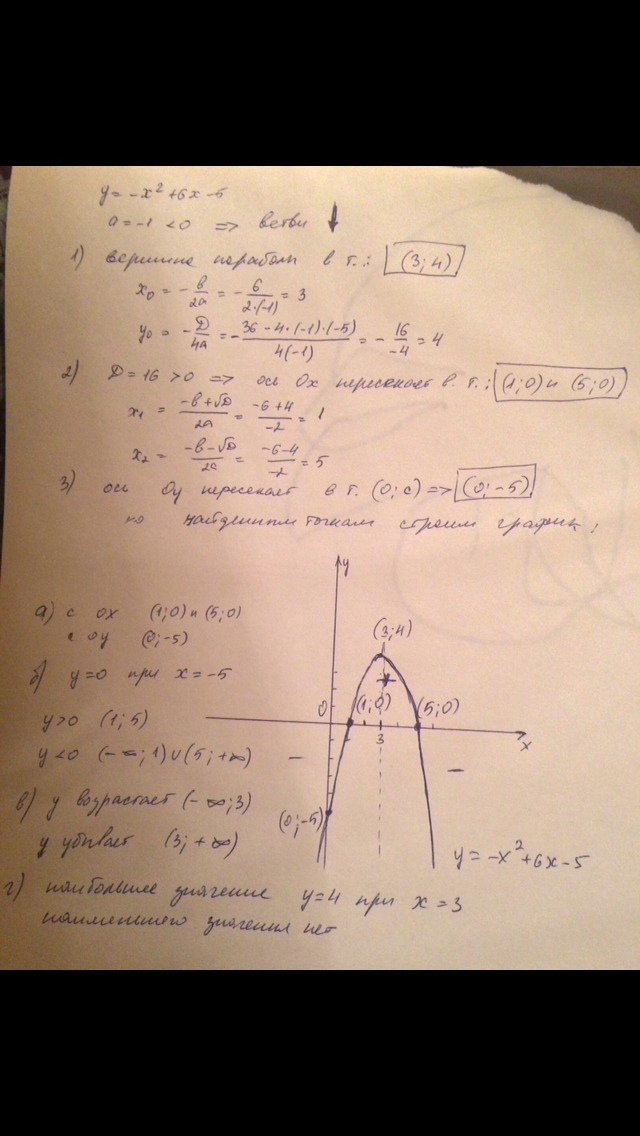 y = -x² + 6x - 5
a = -1 < 0 => ветви ↓
1) вершина параболы в т.: (3; 4)
x₀ = -в/2a = -6/2·(-1) = 3
y₀ = -D/4a = -36-4·(-1)·(-5)/4(-1) = -16/-4 = 4
2) D = 16 > 0 => ось Ox пересекает в т.: (1; 0) и (5; 0)
x₁ = -в+√D/2a = -6+4/-2 = 1
x₂ = -в-√D/2a = -6-4/-2 = 5
3) ось Oy пересекает в т. (0; c) => (0; -5)
по найденным точкам строим график:
а) с ox (1; 0) и (5; 0)
с oy (0; -5)
б) y=0 при x=-5
y>0 (1; 5)
y<0 (-∞; 1)∪(5; +∞)
в) y возрастает (-∞; 3)
y убывает (3; +∞)
г) наибольшее значение y=4 при x=3
наименьшего значения нет
y
(3; 4)
+
0
(1; 0)
(5; 0)
3
x
-
-
(0; -5)
y = -x² + 6x - 5